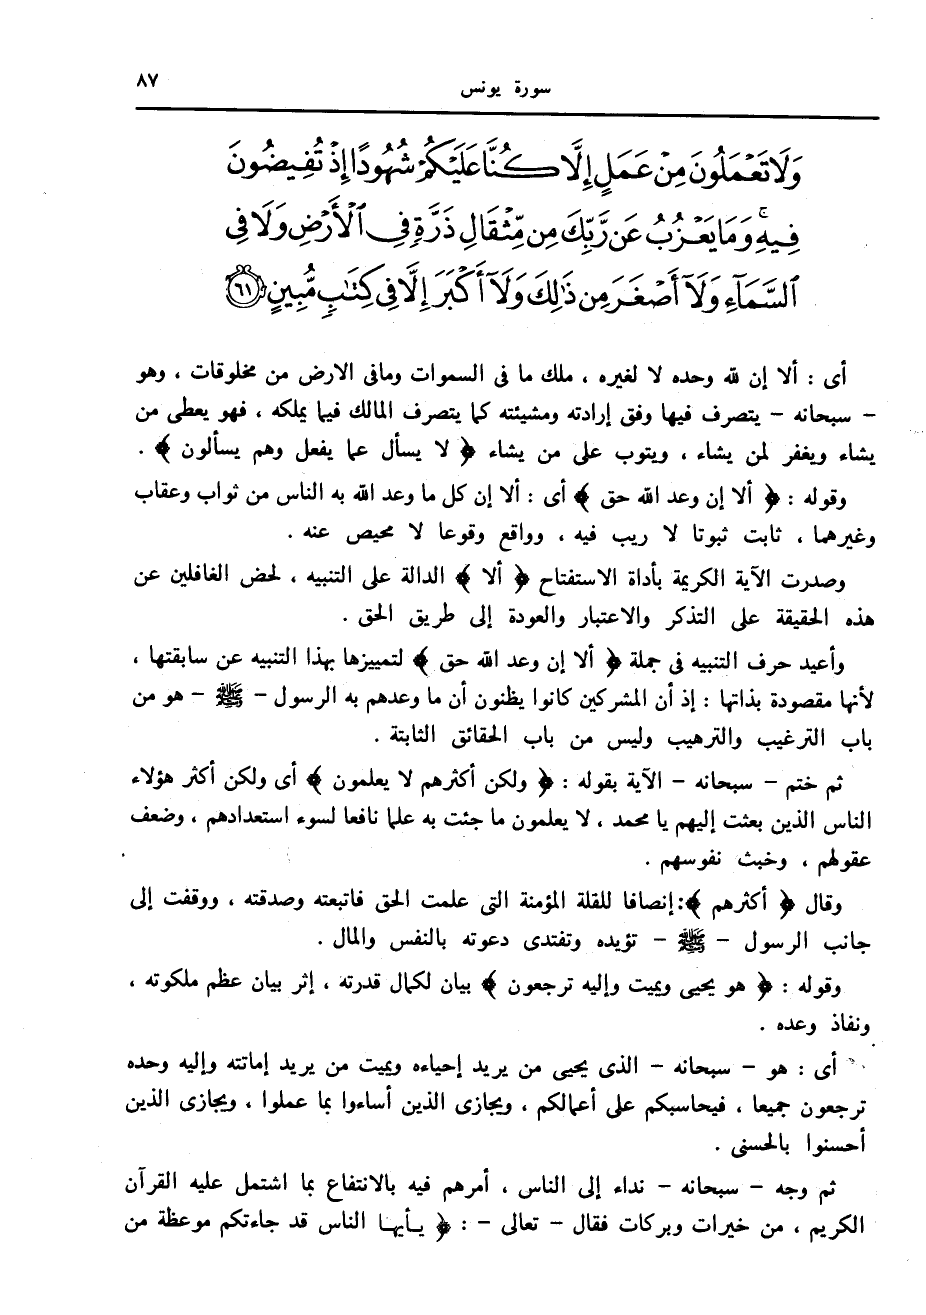 سورة يونس ٨٧
وَلَا تَعْمَلُونَ مِنْ عَمَلٍ إِلَّا كُنَّا عَلَيْكُمْ شُهُودًا إِذْ تُفِيضُونَ
فِيهِ ۚ وَمَا يَعْزُبُ عَن رَّبِّكَ مِن مِّثْقَالِ ذَرَّةٍ فِي ٱلْأَرْضِ وَلَا فِي
ٱلسَّمَآءِ وَلَآ أَصْغَرَ مِن ذَٰلِكَ وَلَآ أَكْبَرَ إِلَّا فِي كِتَٰبٍ مُّبِينٍ ﴿٦١﴾
أى : ألا إن لله وحده لا لغيره ، ملك ما فى السموات ومافى الارض من مخلوقات ، وهو
– سبحانه – يتصرف فيها وفق إرادته ومشيئته كما يتصرف المالك فيما يملكه ، فهو يعطى من
يشاء ويغفر لمن يشاء ، ويتوب على من يشاء ﴿ لا يسأل عما يفعل وهم يسألون ﴾ .
وقوله : ﴿ ألا إن وعد الله حق ﴾ أى : ألا إن كل ما وعد الله به الناس من ثواب وعقاب
وغيرهما ، ثابت ثبوتا لا ريب فيه ، وواقع وقوعا لا محيص عنه .
وصدرت الآية الكريمة بأداة الاستفتاح ﴿ ألا ﴾ الدالة على التنبيه ، لحض الغافلين عن
هذه الحقيقة على التذكر والاعتبار والعودة إلى طريق الحق .
وأعيد حرف التنبيه فى جملة ﴿ ألا إن وعد الله حق ﴾ لتمييزها بهذا التنبيه عن سابقتها ،
لأنها مقصودة بذاتها : إذ أن المشركين كانوا يظنون أن ما وعدهم به الرسول – ﷺ – هو من
باب الترغيب والترهيب وليس من باب الحقائق الثابتة .
ثم ختم – سبحانه – الآية بقوله : ﴿ ولكن أكثرهم لا يعلمون ﴾ أى ولكن أكثر هؤلاء
الناس الذين بعثت إليهم يا محمد ، لا يعلمون ما جئت به علما نافعا لسوء استعدادهم ، وضعف
عقولهم ، وخبث نفوسهم .
وقال ﴿ أكثرهم ﴾: إنصافا للقلة المؤمنة التى علمت الحق فاتبعته وصدقته ، ووقفت إلى
جانب الرسول – ﷺ – تؤيده وتفتدى دعوته بالنفس والمال .
وقوله : ﴿ هو يحيى ويميت وإليه ترجعون ﴾ بيان لكمال قدرته ، إثر بيان عظم ملكوته ،
ونفاذ وعده .
أى : هو – سبحانه – الذى يحيى من يريد إحياءه ويميت من يريد إماتته وإليه وحده
ترجعون جميعا ، فيحاسبكم على أعمالكم ، ويجازى الذين أساءوا بما عملوا ، ويجازى الذين
أحسنوا بالحسنى .
ثم وجه – سبحانه – نداء إلى الناس ، أمرهم فيه بالانتفاع بما اشتمل عليه القرآن
الكريم ، من خيرات وبركات فقال – تعالى – : ﴿ يـأيهـا الناس قد جاءتكم موعظة من